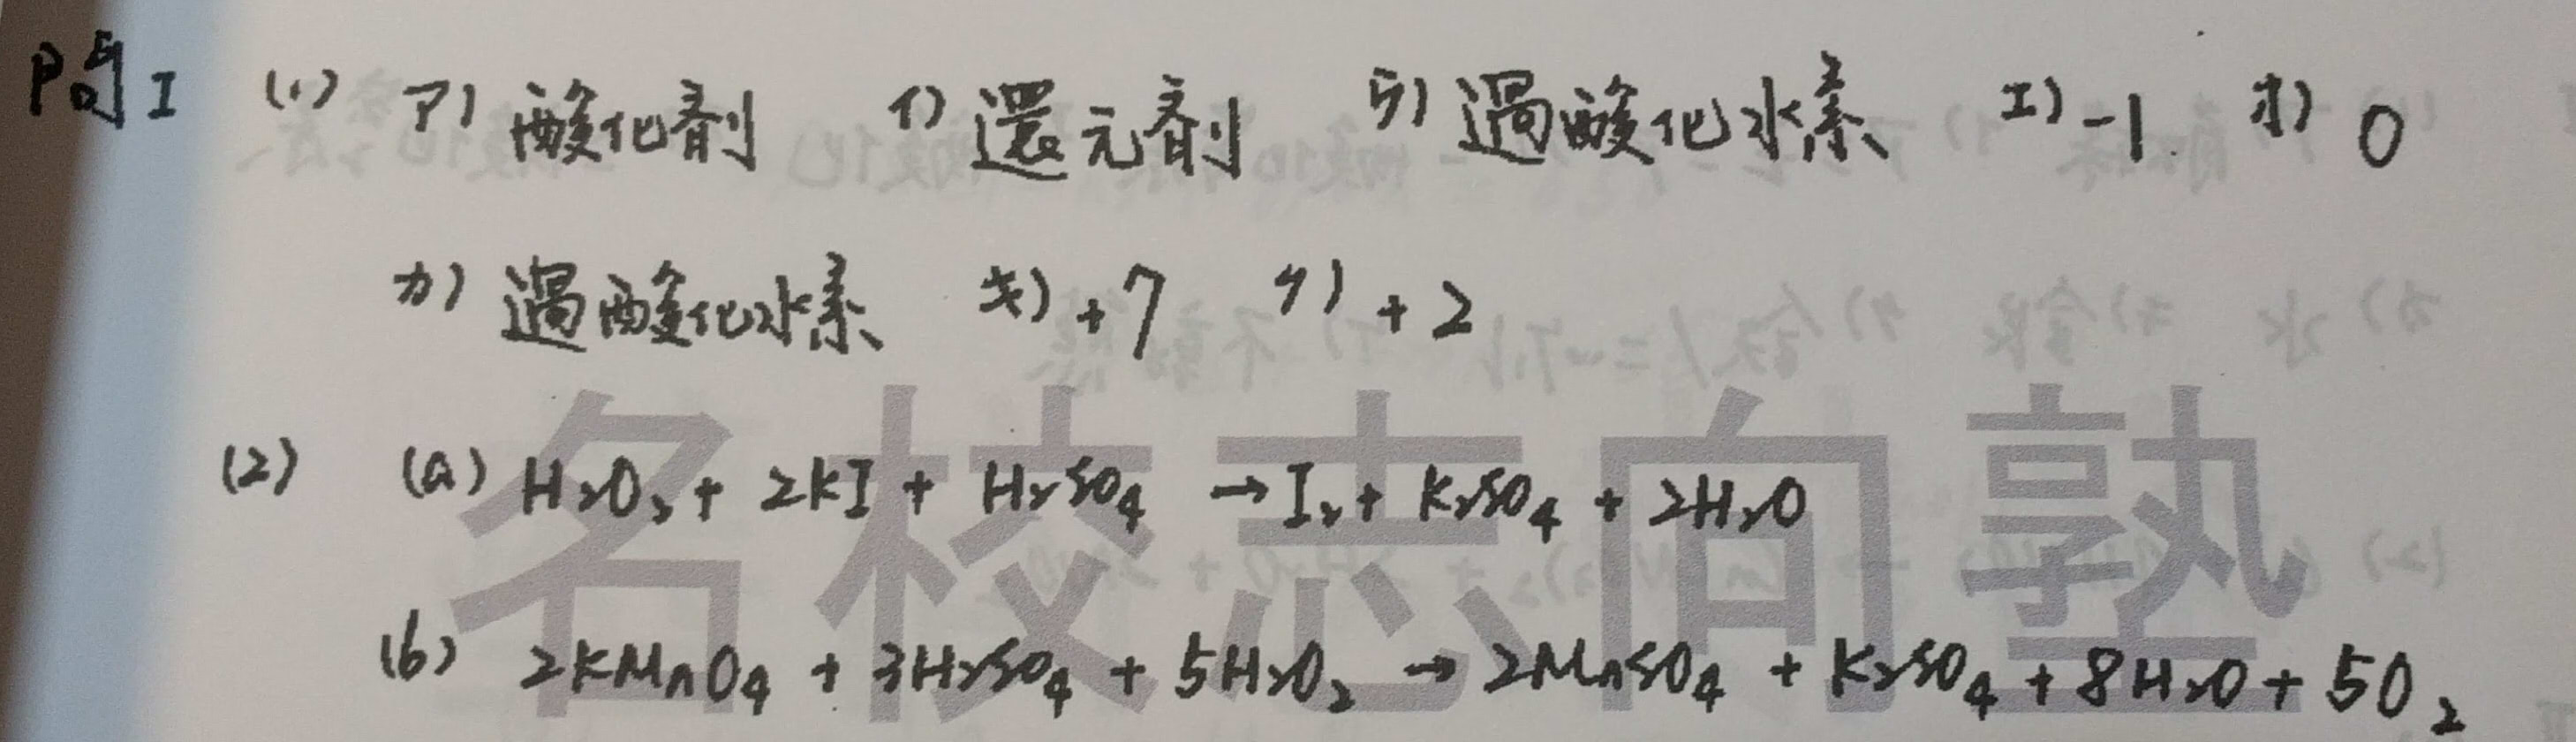 問I (1) ア) 酸化剤 イ) 還元剤 ウ) 過酸化水素 エ) -1 オ) 0
カ) 過酸化水素 キ) +7 ク) +2
名校志向塾
(2) (a) H₂O₂ + 2KI + H₂SO₄ → I₂ + K₂SO₄ + 2H₂O
(b) 2KMnO₄ + 3H₂SO₄ + 5H₂O₂ → 2MnSO₄ + K₂SO₄ + 8H₂O + 5O₂